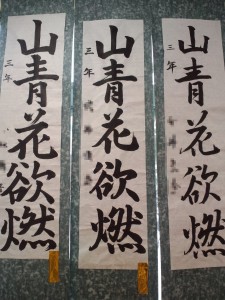 山青花欲燃
三年
山青花欲燃
三年
山青花欲燃
三年